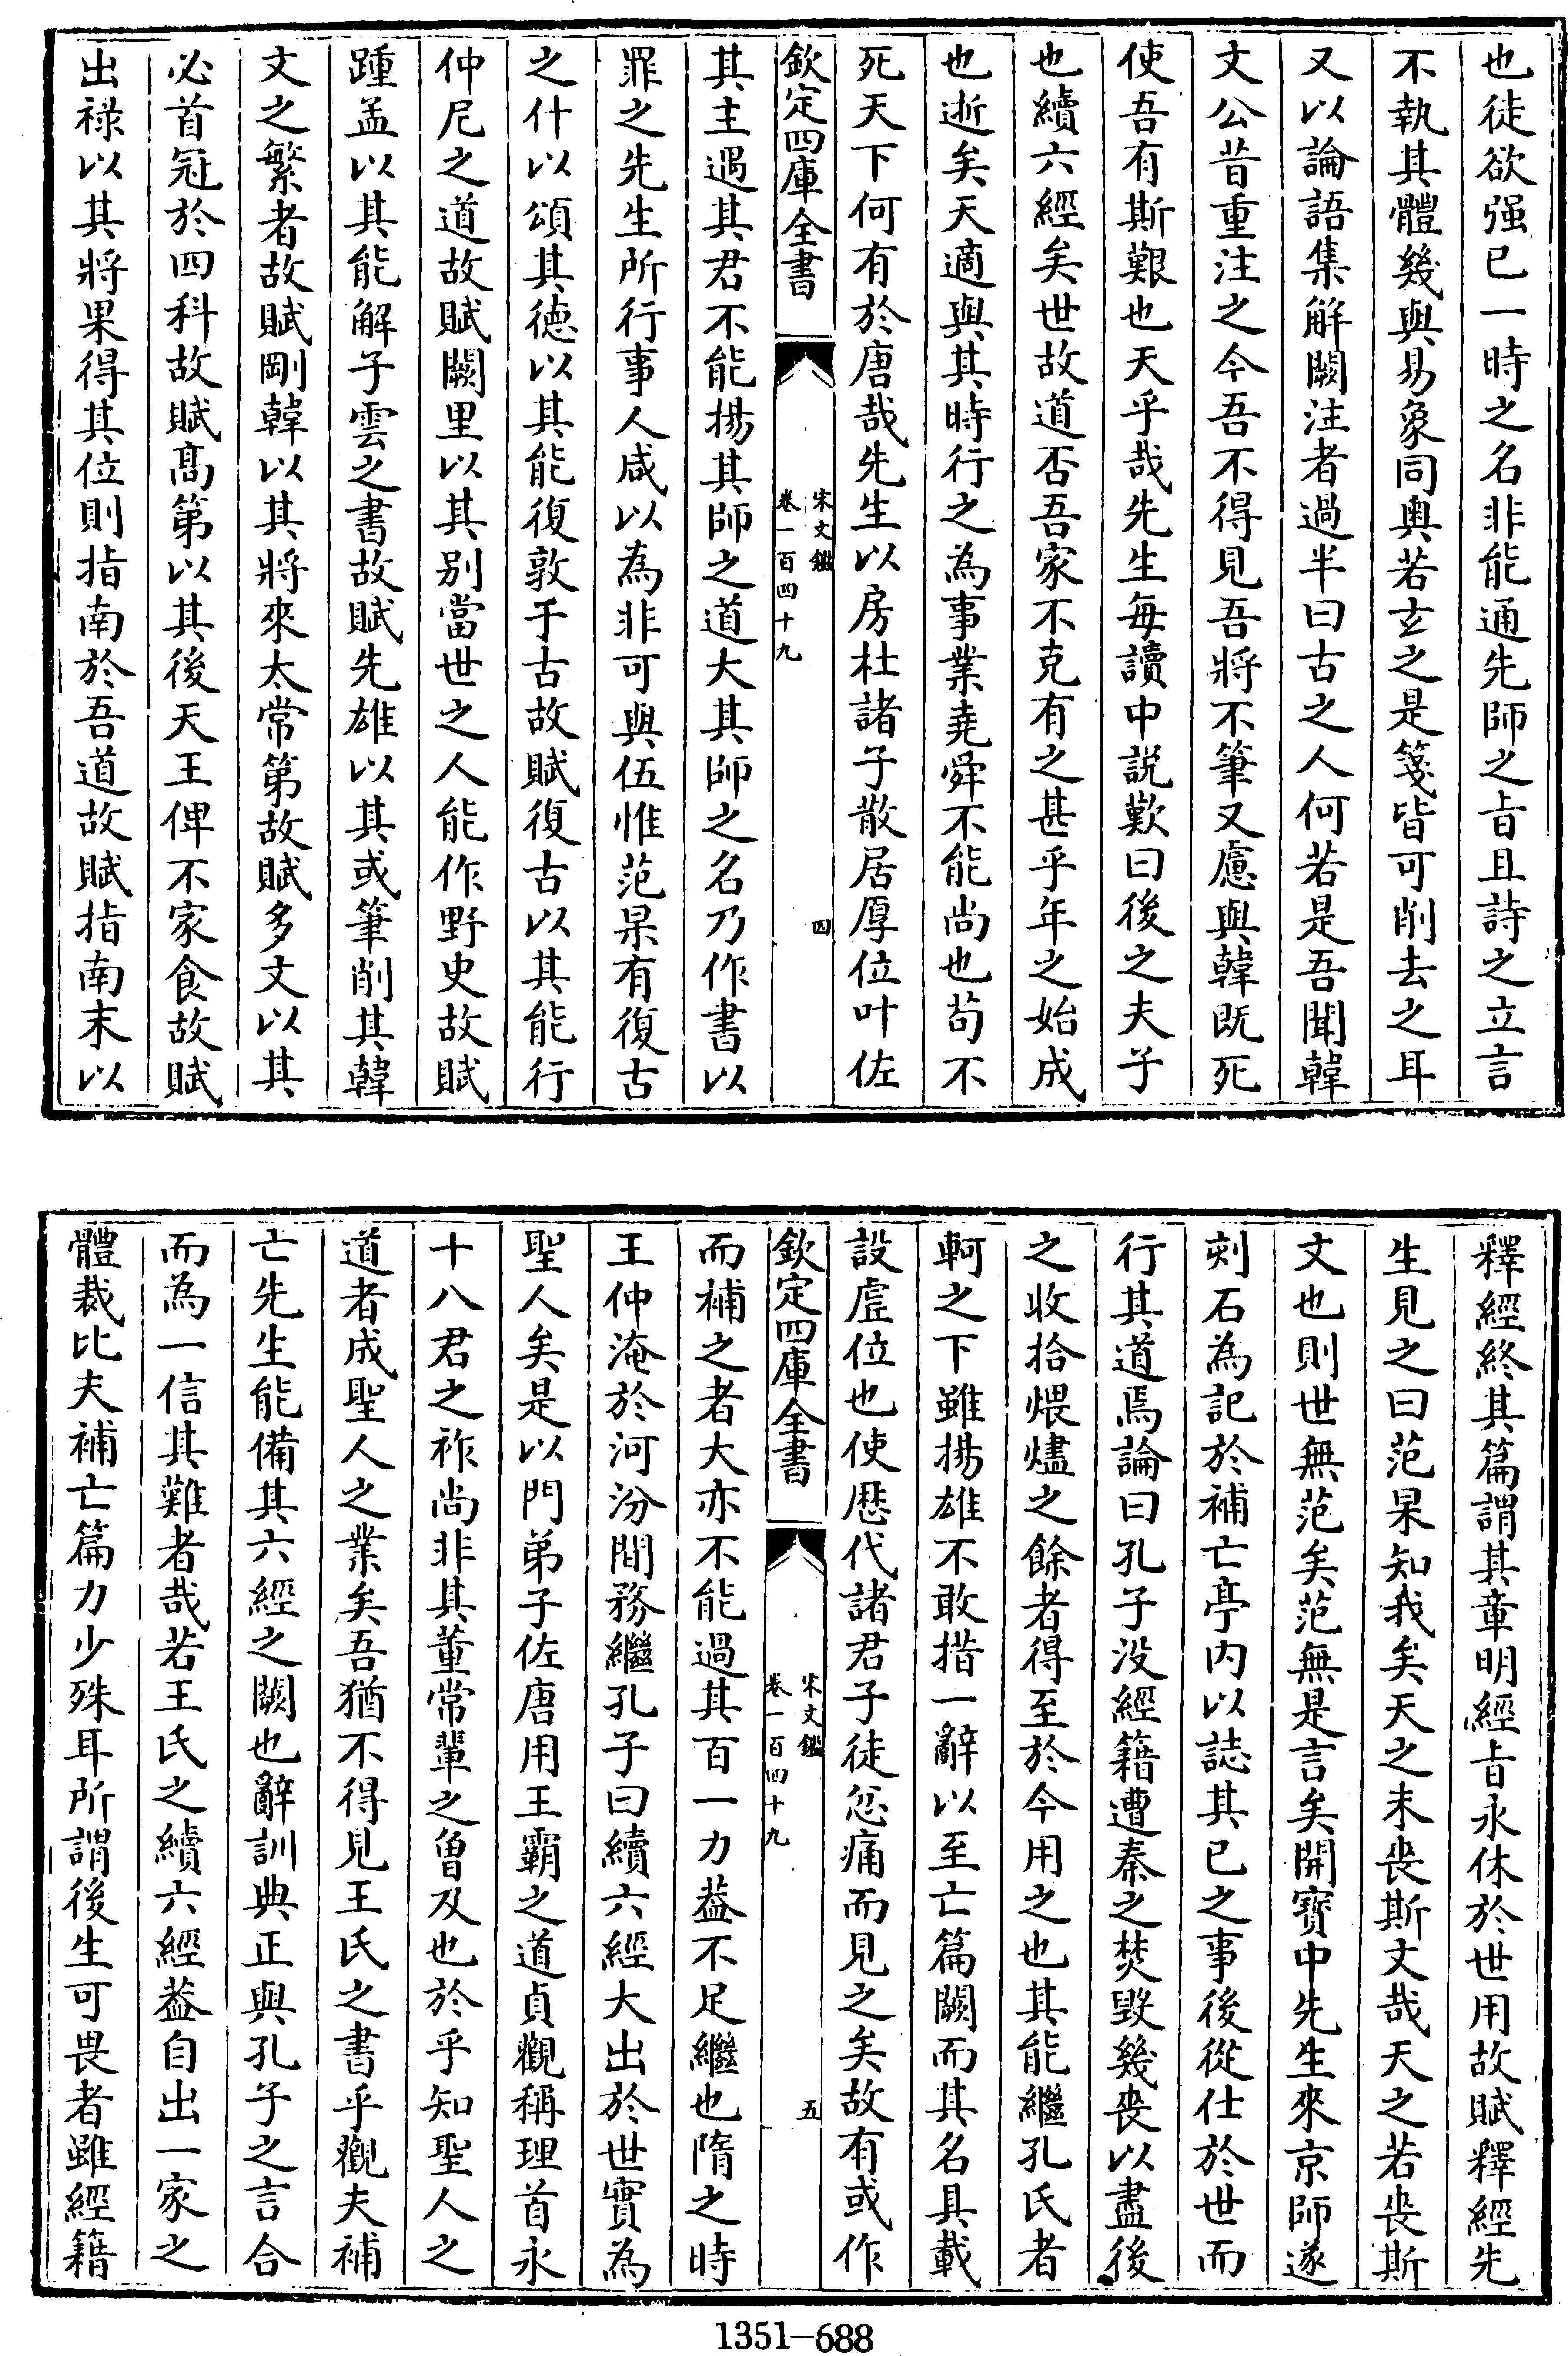 也徒欲强已一時之名非能通先師之㫖且詩之立言
不執其體幾與易象同奥若玄之是箋皆可削去之耳
又以論語集解闕注者過半曰古之人何若是吾聞韓
文公昔重注之今吾不得見吾將不筆又慮與韓既死
使吾有斯艱也天乎哉先生每讀中説歎曰後之夫子
也續六經矣世故道否吾家不克有之甚乎年之始成
也逝矣天適與其時行之為事業堯舜不能尚也茍不
死天下何有於唐哉先生以房杜諸子散居厚位叶佐
欽定四庫全書
宋文鑑
卷一百四十九
四
其主遇其君不能揚其師之道大其師之名乃作書以
罪之先生所行事人咸以為非可與伍惟范杲有復古
之什以頌其徳以其能復敦于古故賦復古以其能行
仲尼之道故賦闕里以其别當世之人能作野史故賦
踵孟以其能解子雲之書故賦先雄以其或筆削其韓
文之繁者故賦剛韓以其將來太常第故賦多文以其
必首冠於四科故賦髙第以其後天王俾不家食故賦
出禄以其將果得其位則指南於吾道故賦指南末以
釋經終其篇謂其章明經㫖永休於世用故賦釋經先
生見之曰范杲知我矣天之未喪斯文哉天之若喪斯
文也則世無范矣范無是言矣開寶中先生來京師遂
刻石為記於補亡亭内以誌其已之事後從仕於世而
行其道焉論曰孔子没經籍遭秦之焚毁幾喪以盡後
之收拾煨燼之餘者得至於今用之也其能繼孔氏者
軻之下雖揚雄不敢措一辭以至亡篇闕而其名具載
設虚位也使厯代諸君子徒忿痛而見之矣故有或作
欽定四庫全書
宋文鑑
卷一百四十九
五
而補之者大亦不能過其百一力葢不足繼也隋之時
王仲淹於河汾間務繼孔子曰續六經大出於世實為
聖人矣是以門弟子佐唐用王霸之道貞觀稱理首永
十八君之祚尚非其董常輩之曽及也於乎知聖人之
道者成聖人之業矣吾猶不得見王氏之書乎觀夫補
亡先生能備其六經之闕也辭訓典正與孔子之言合
而為一信其難者哉若王氏之續六經葢自出一家之
體裁比夫補亡篇力少殊耳所謂後生可畏者雖經籍
1351—688